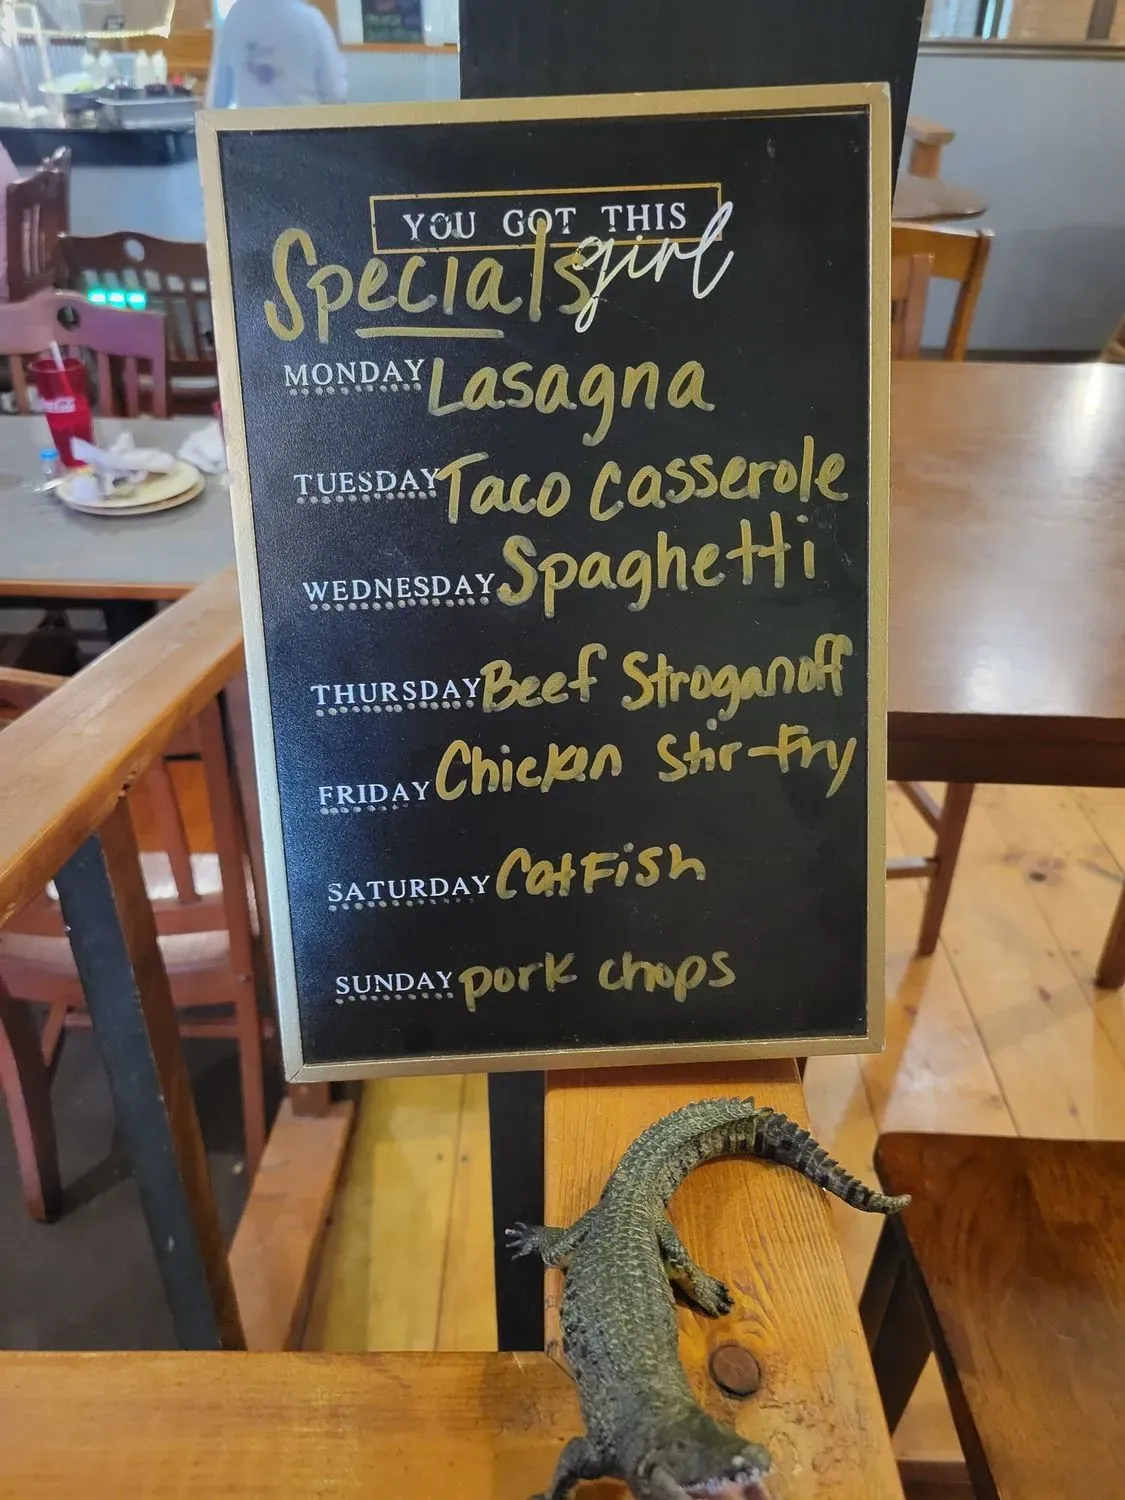 YOU GOT THIS
girl
Specials
MONDAY Lasagna
TUESDAY Taco Casserole
WEDNESDAY Spaghetti
THURSDAY Beef Stroganoff
FRIDAY Chicken Stir-Fry
SATURDAY CatFish
SUNDAY pork chops